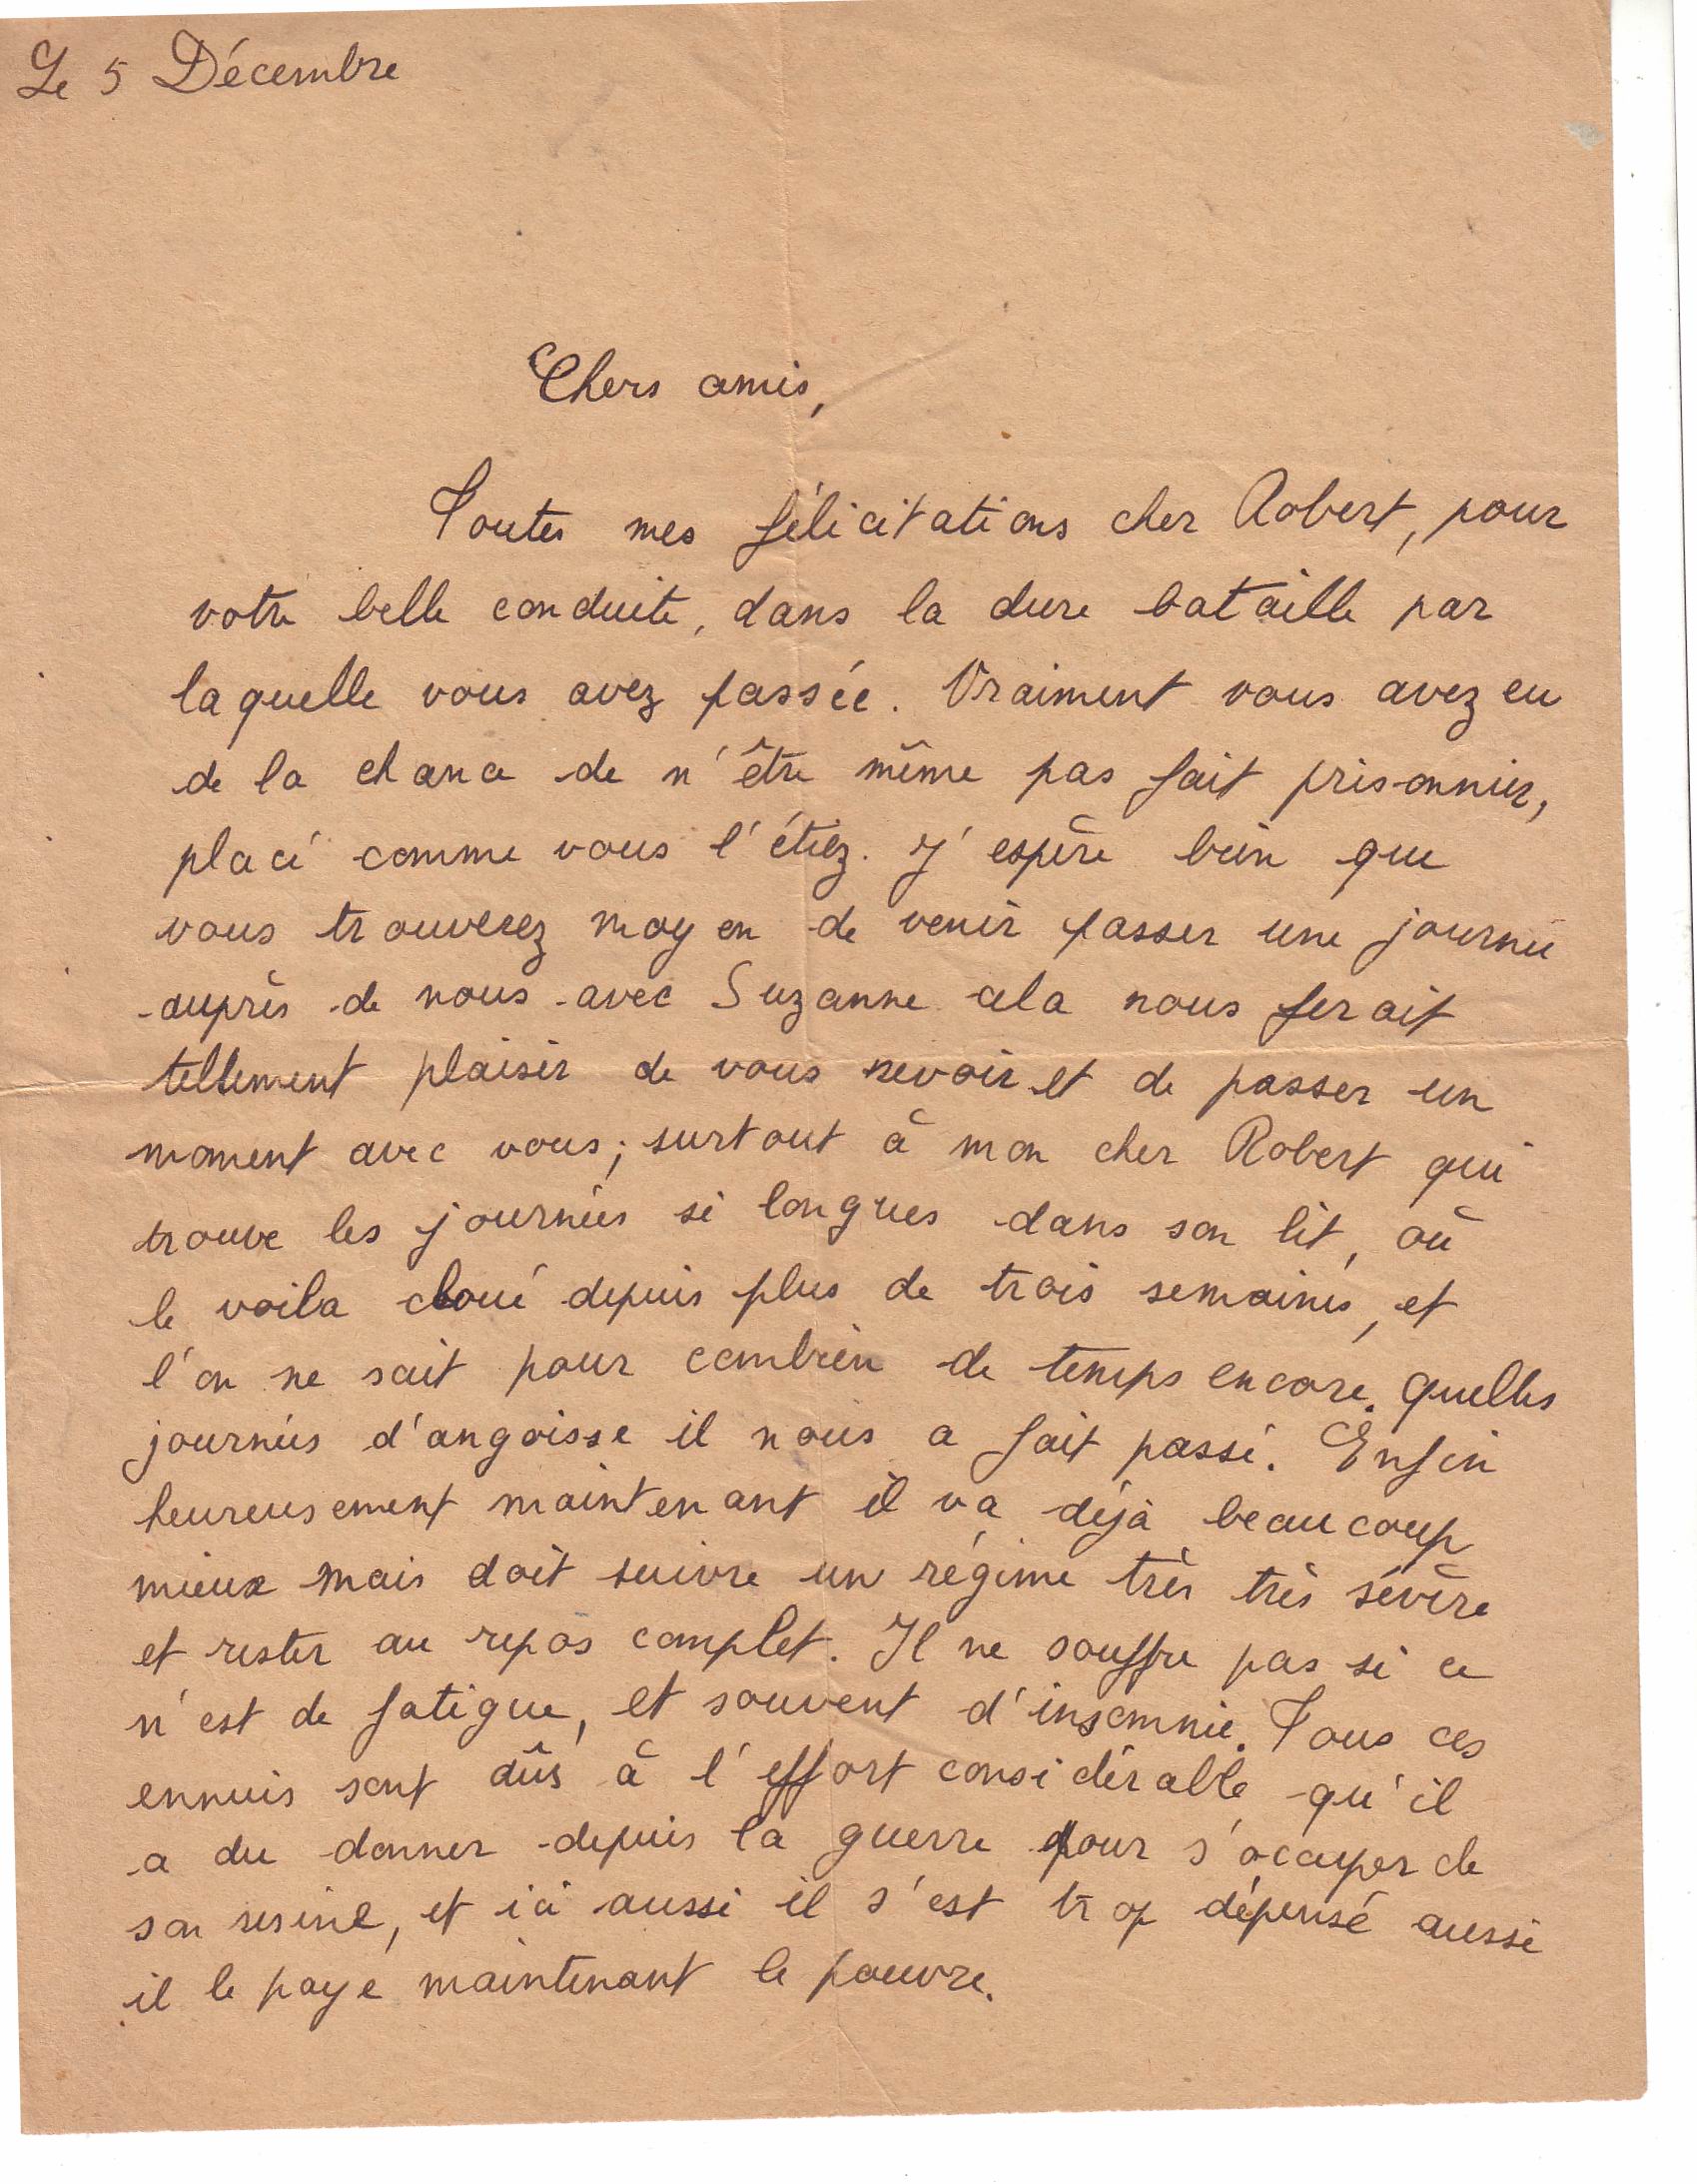 Le 5 Décembre
Chers amis,
Toutes mes félicitations cher Robert, pour
votre belle conduite, dans la dure bataille par
laquelle vous avez passée. Vraiment vous avez eu
de la chance de n'être même pas fait prisonnier,
placé comme vous l'étiez. J'espère bien que
vous trouverez moyen de venir passer une journée
auprès de nous avec Suzanne cela nous ferait
tellement plaisir de vous revoir et de passer un
moment avec vous; surtout à mon cher Robert qui
trouve les journées si longues dans son lit, où
le voila cloué depuis plus de trois semaines, et
l'on ne sait pour combien de temps encore. Quelles
journées d'angoisse il nous a fait passé. Enfin
heureusement maintenant il va déjà beaucoup
mieux mais doit suivre un régime très très sévère
et rester au repos complet. Il ne souffre pas si ce
n'est de fatigue, et souvent d'insomnie. Tous ces
ennuis sont dûs à l'effort considérable qu'il
a du donner depuis la guerre pour s'occuper de
son usine, et ici aussi il s'est trop dépensé aussi
il le paye maintenant le pauvre.